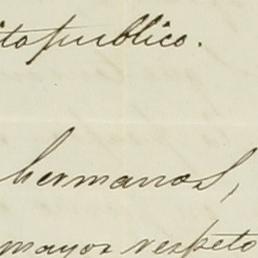 ito publico.
hermanos,
mayor respeto